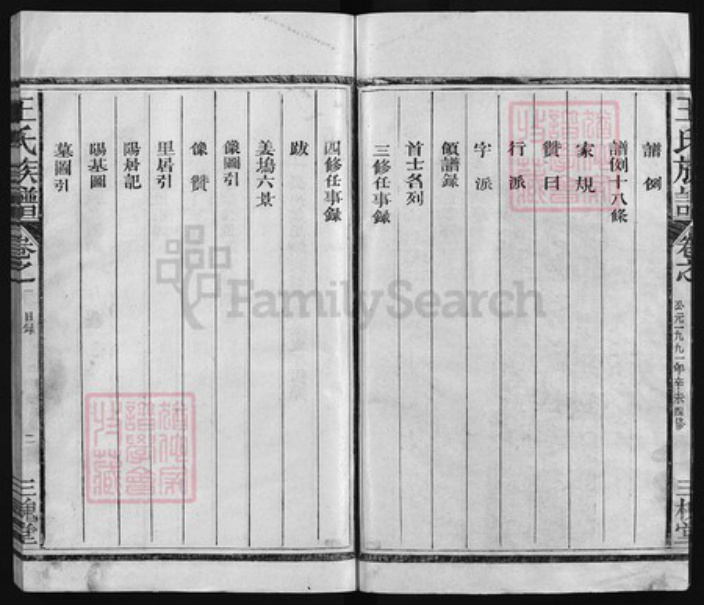 王氏族譜
卷之
公元一九九一年辛未四修
三槐堂
譜例
譜例十八條
家規
贊曰
行派
字派
領譜錄
首士名列
三修任事錄
四修任事錄
跋
姜塢六景
像圖引
像贊
里居引
陽居記
陽基圖
墓圖引
王氏族譜
卷之一
目錄
二
三槐堂
FamilySearch